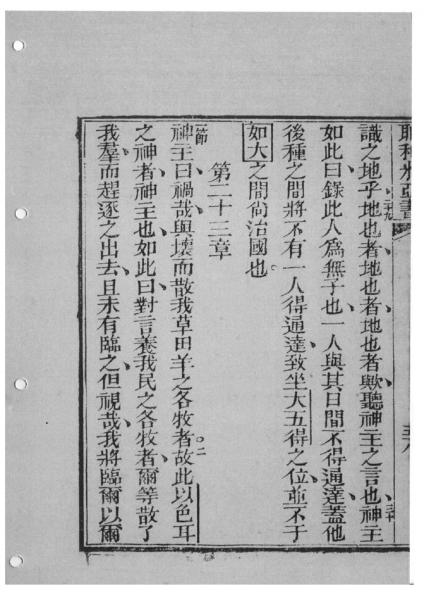 耶利米亞書
五八
識之地乎地也者地也者地也者歟聽神主之言也神主
如此曰錄此人爲無子也一人與其日間不得通達蓋他
後種之間將不有一人得通達致坐大五得之位並不于
如大之間尙治國也
第二十三章
一節
神主曰禍哉與壞而散我草田羊之各牧者二故此以色耳
之神者神主也如此曰對言養我民之各牧者爾等散了
我羣而趕逐之出去且未有臨之但視哉我將臨爾以爾